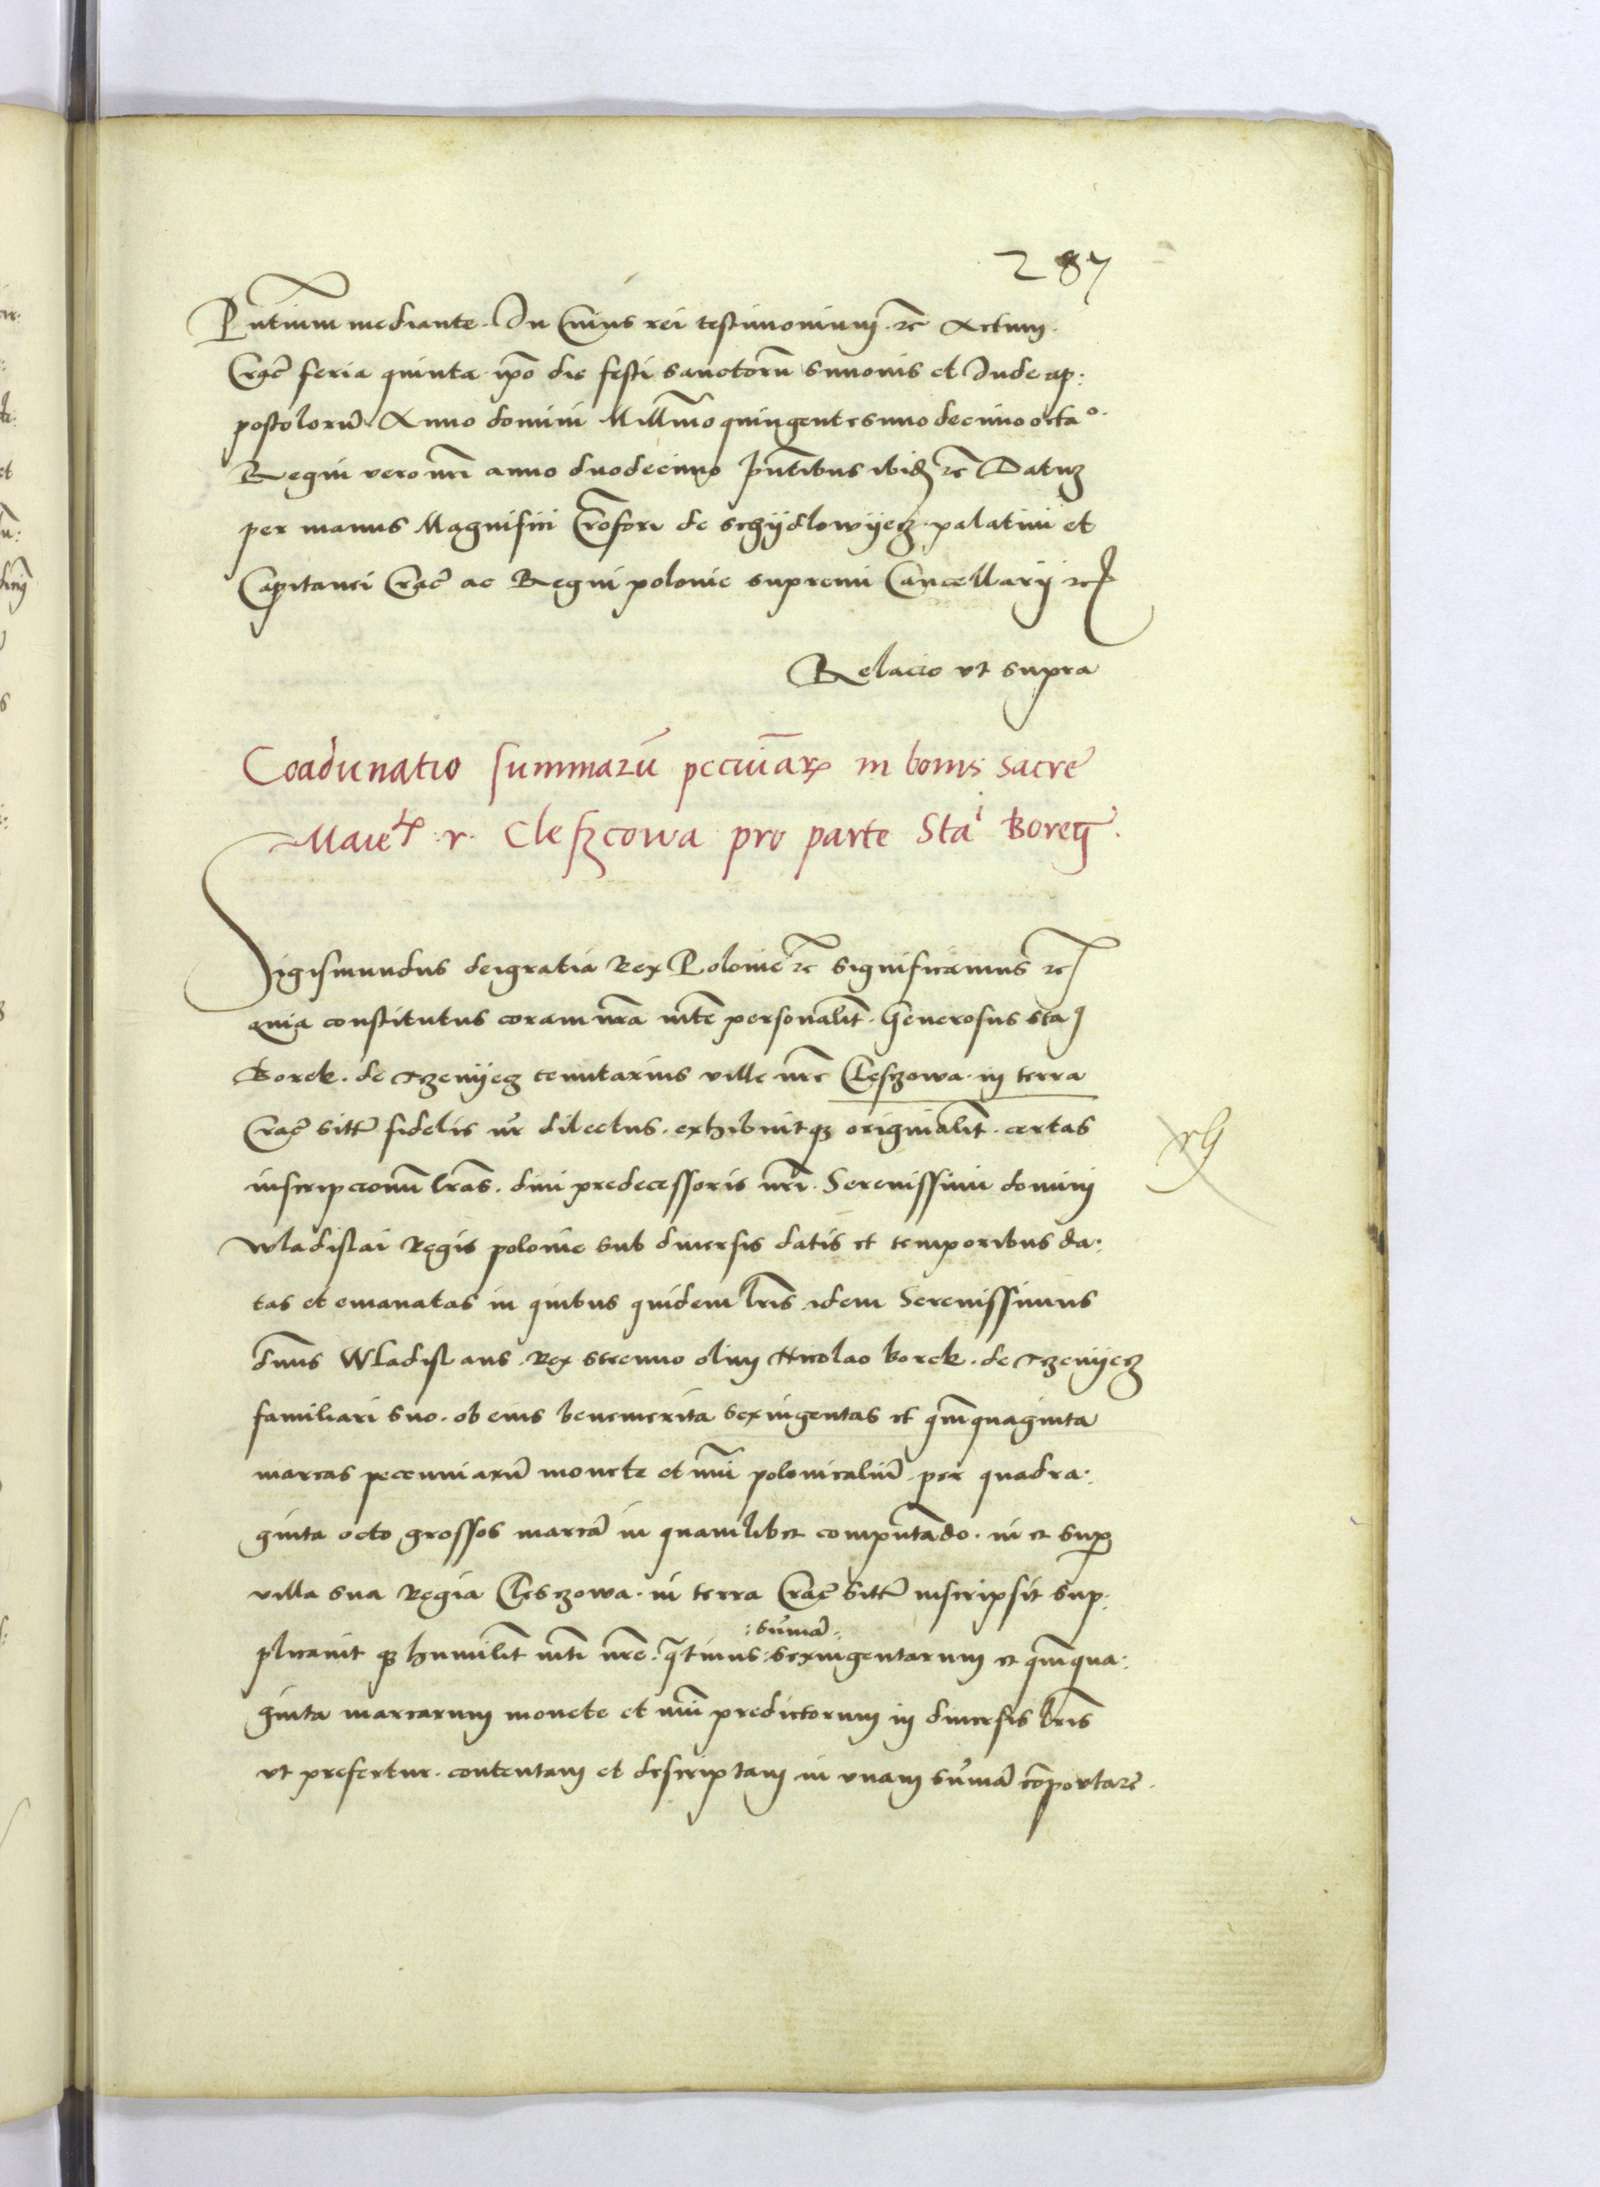 287
Pntium mediante. In Cuius rei testimonium. rc Actum.
Crac̄ feria quinta ipo die festi sanctorū simonis et Iude ap:
postolorū. Anno domini Millmo quingentesimo decimo octaº.
Regni vero nri anno duodecimo pntibus ibid rc Datuz
per manus Magnifici Crofori de schydlowyecz palatini et
Capitanei Crac̄ ac Regni polonie supremi Cancellarij rc
Relacio vt supra
Coadunatio summarū pecuiarꝝ in bonis sacre
Maieᵗꝭ r. Cleszcowa pro parte Staⁱ Boreg.
Sigismundus dei gratia Rex Polonie rc significamus rc
quia constitutus coram nra mte personalit. Generosus sta
Borek. de Trzenyecz tenutarius ville nre Clesczowa. in terra
Crac̄ sitte fidelis nr dilectus. exhibuitqꝫ originalit. certas
inscripcionū lras. diui predecessoris nri. Serenissimi domini
wladislai Regis polonie sub diuersis datis et temporibus da:
tas et emanatas in quibus quidem lris. idem Serenissimus
dnus Wladislaus. Rex strenuo olim Nicolao borek. de Trzenyecz
familiari suo. ob eius benemerita sexingentas et qmquaginta
marcas peccuniarū monete et nūi polonicaliū per quadra:
ginta octo grossos marcā in quamlibet computādo. in et supꝑ
villa sua Regia Clesczowa. in terra Crac̄ sitte inscripsit sup:
plicauit qꝫ humilit mti nre. q̄tinus :sūmā: sexingentarum et qmqua:
ginta marcarum monete et nūi predictorum in diuersis lris
vt prefertur. contentam et descriptam in vnam sūmā cōportare.